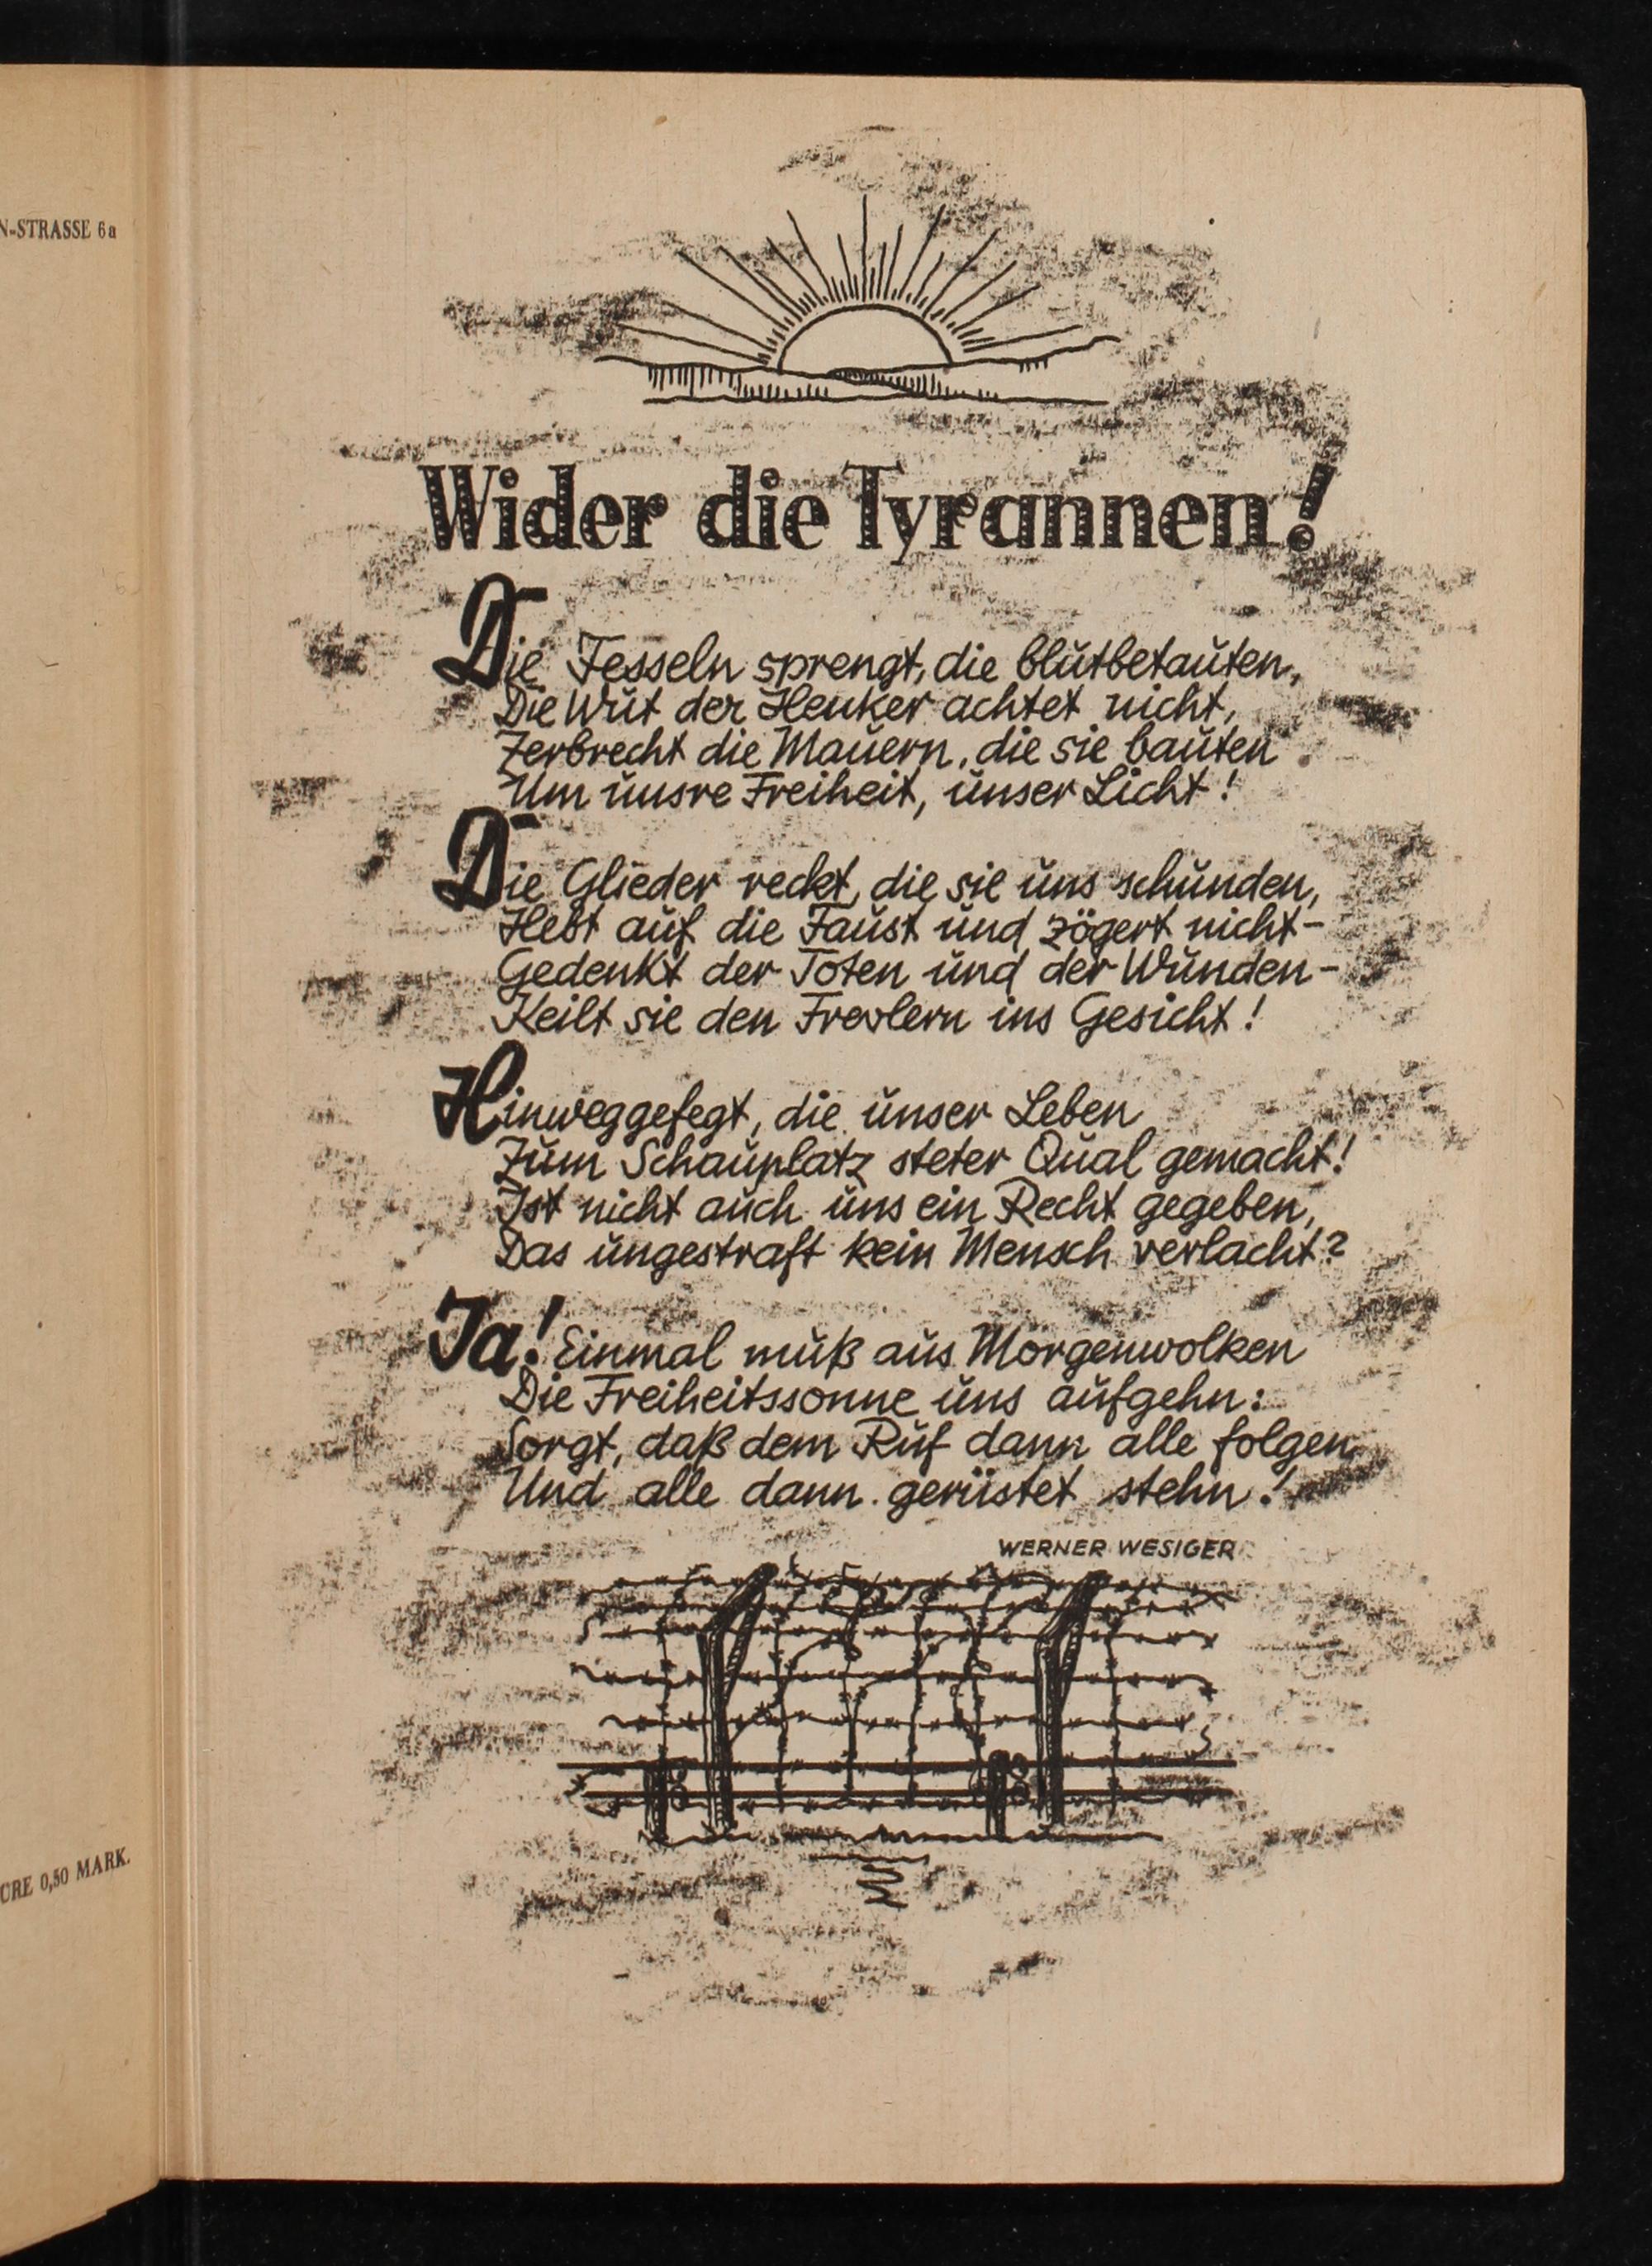 N-STRASSE 6a
CRE 0,50 MARK.
Wider die Tyrannen!
Die Fesseln sprengt, die blutbetauten,
Die Wut der Henker achtet nicht,
Zerbrecht die Mauern, die sie bauten
Um unsre Freiheit, unser Licht!
Die Glieder reckt, die sie uns schunden,
Hebt auf die Faust und zögert nicht-
Gedenkt der Toten und der Wunden-
Keilt sie den Frevlern ins Gesicht!
Hinweggefegt, die unser Leben
Zum Schauplatz steter Qual gemacht!
Ist nicht auch uns ein Recht gegeben,
Das ungestraft kein Mensch verlacht?
Ja! Einmal muß aus Morgenwolken
Die Freiheitssonne uns aufgehn:
Sorgt, daß dem Ruf dann alle folgen
Und alle dann gerüstet stehn!
WERNER WESIGER